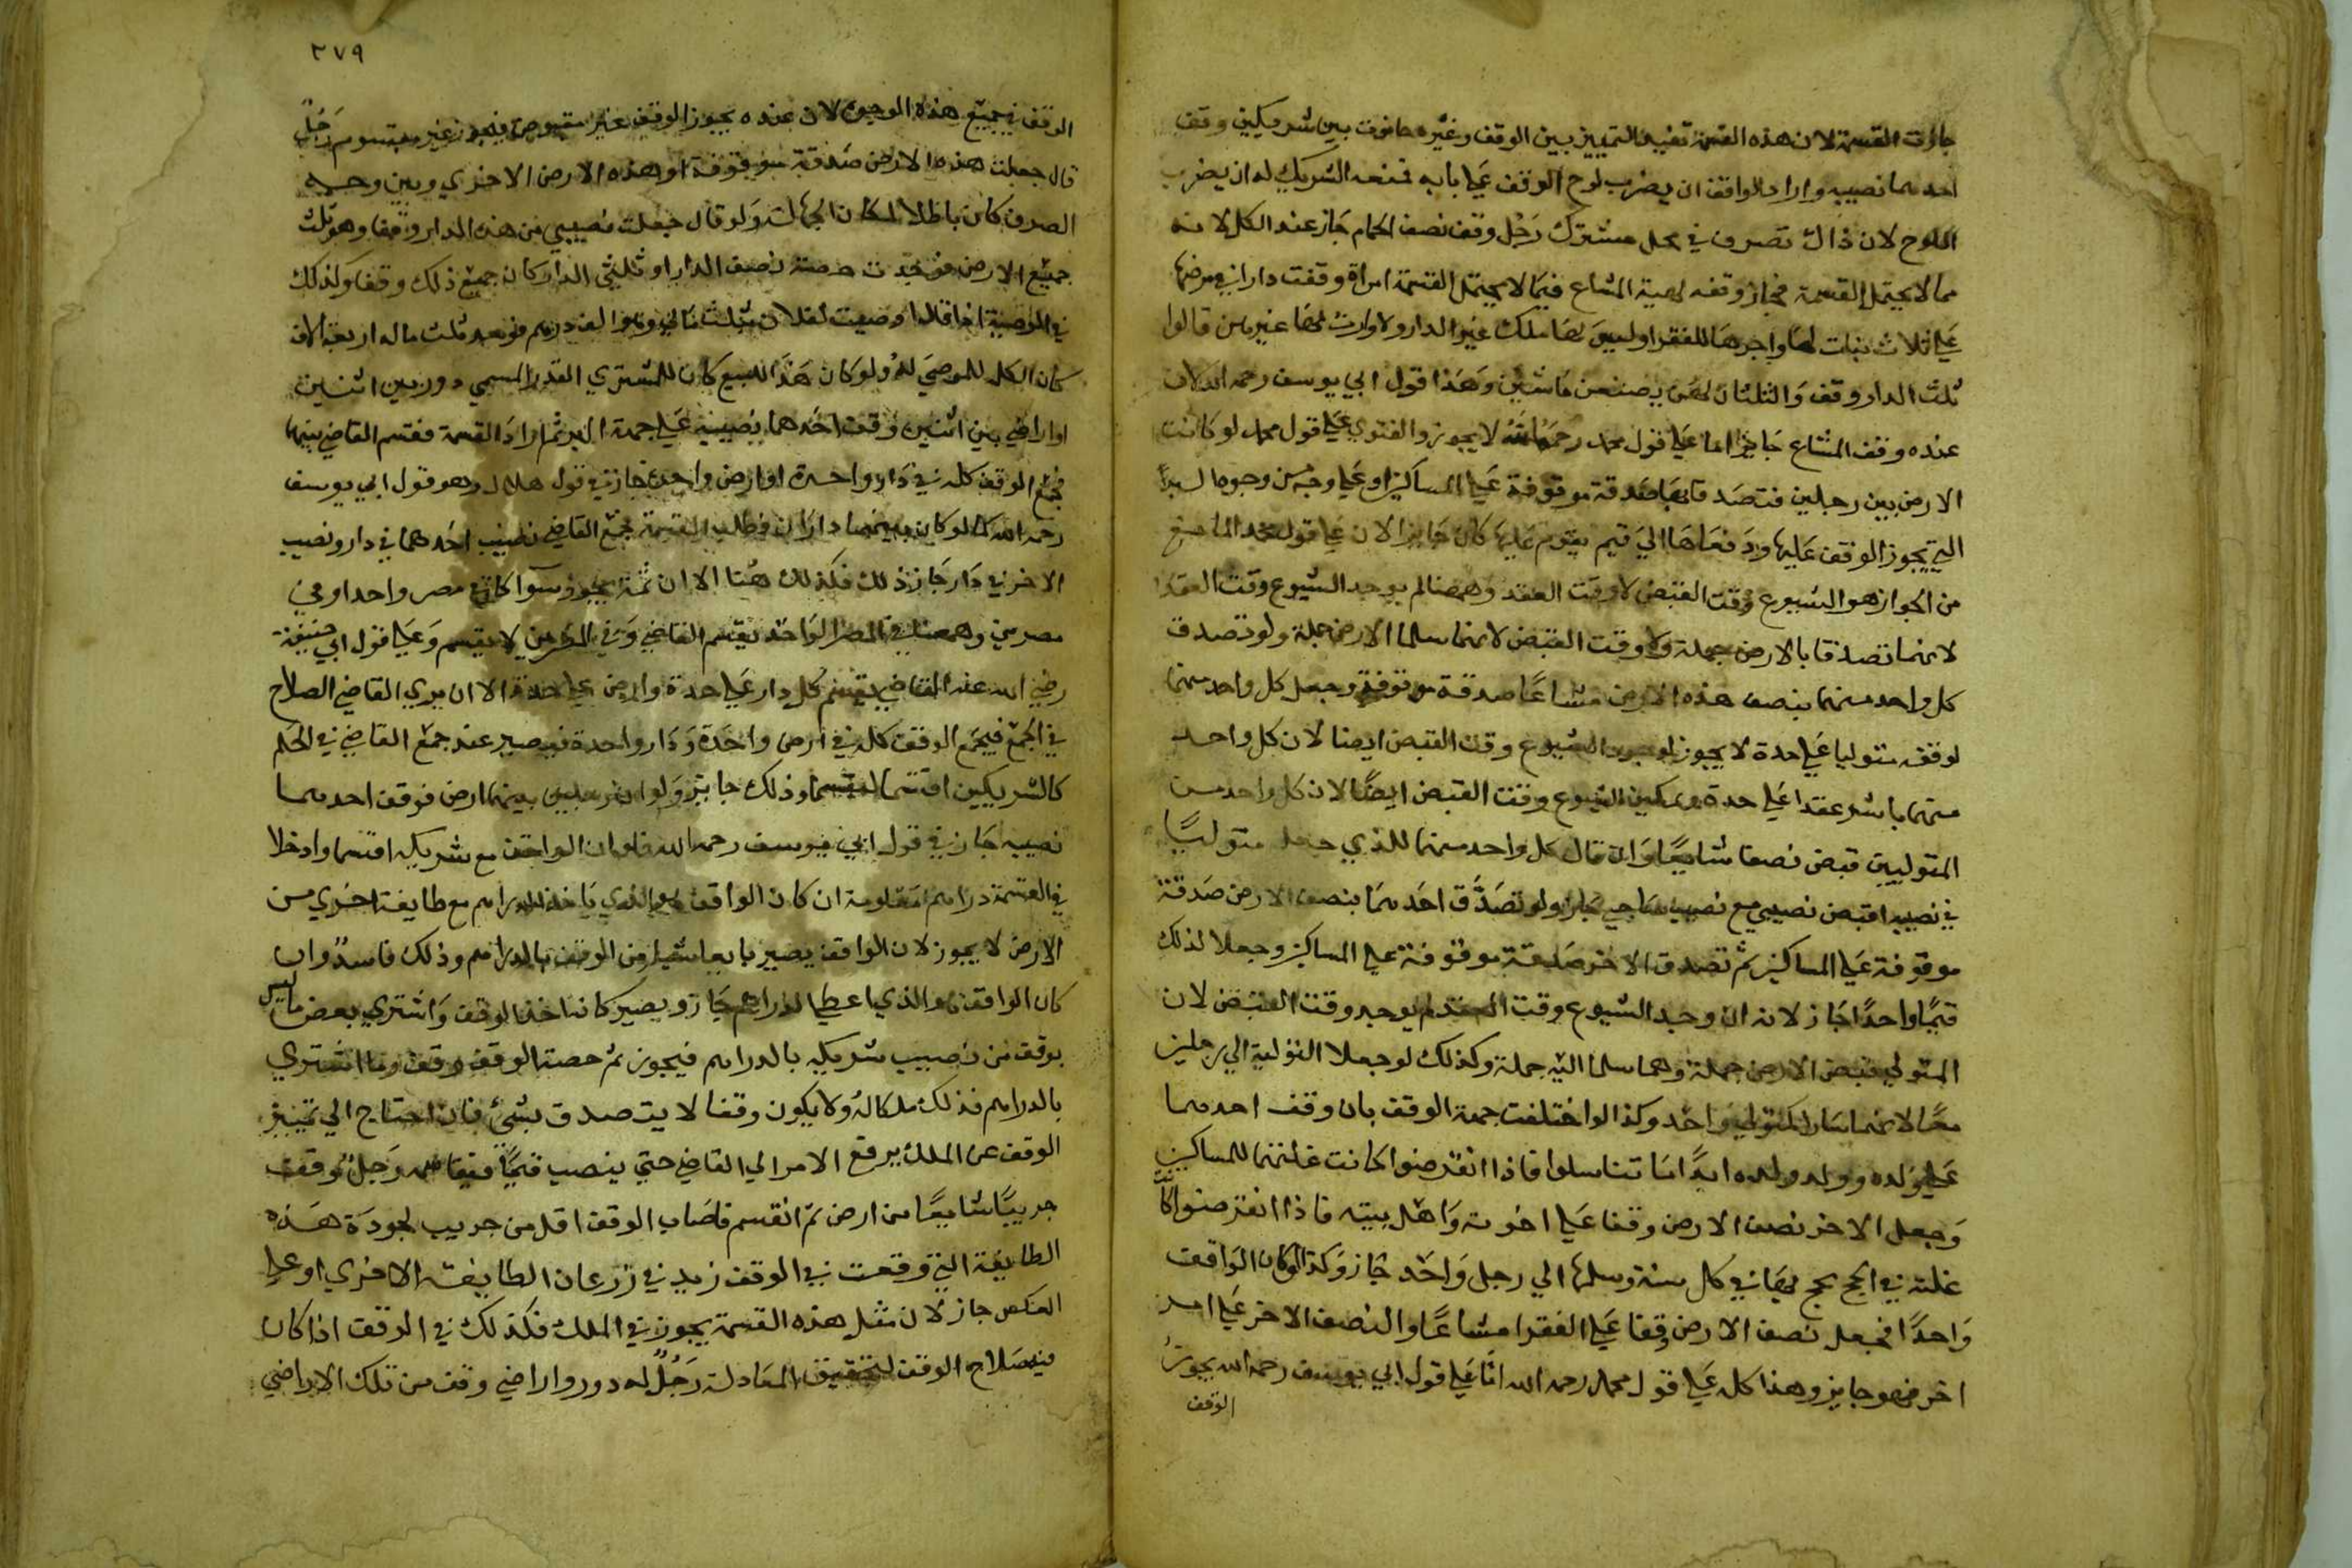 جازت القسمة لان هذه القسمة تفيد التمييز بين الوقف وغيره حانوت بين شريكين وقف
احدهما نصيبه واراد الواقف ان يضرب لوح الوقف علي بابه فمنعه الشريك له ان يضرب
اللوح لان ذاك تصرف في محل مشترك رجل وقف نصف الحمام جاز عند الكل لانه
مما لا يحتمل القسمة فجاز وقفه لهبة المشاع فيما لا يحتمل القسمة امراة وقفت دارا في مرضها
علي ثلاث بنات لها واخرها للفقرا وليس لها ملك غير الدار ولا وارث لها غيرهن قالوا
ثلث الدار وقف والثلثان لهن يصنعن ما شئن وهذا قول ابي يوسف رحمه الله لان
عنده وقف المشاع جايز اما علي قول محمد رحمه الله لا يجوز والفتوي علي قول محمد لو كانت
الارض بين رجلين فتصدقا بها صدقة موقوفة علي المساكين او علي وجه من وجوه البر
التي يجوز الوقف عليها ودفعاها الي قيم يقوم عليها كان جايزا لان علي قول محمد المانع
من الجواز هو الشيوع وقت القبض لا وقت العقد وههنا لم يوجد الشيوع وقت العقد
لانهما تصدقا بالارض جملة ولا وقت القبض لانهما سلما الارض جملة ولو تصدق
كل واحد منهما بنصف هذه الارض مشاعا صدقة موقوفة وجعل كل واحد منهما
لوقفه متوليا علي حدة لا يجوز لوجود الشيوع وقت القبض ايضا لان كل واحد
منهما باشر عقدا علي حدة وتمكين الشيوع وقت القبض ايضا لان كل واحد من
المتوليين قبض نصفا شايعا وان قال كل واحد منهما للذي جعل متوليا
في نصيبه اقبض نصيبي مع نصيب صاحبي جاز ولو تصدق احدهما بنصف الارض صدقة
موقوفة علي المساكين ثم تصدق الاخر صدقة موقوفة علي المساكين وجعلا لذلك
قيما واحدا جاز لانه ان وجد الشيوع وقت العقد لم يوجد وقت القبض لان
المتولي قبض الارض جملة وهما سلما اليه جملة وكذلك لو جعلا التولية الي رجلين
معا لانهما صارا كمتولي واحد وكذا لو اختلفت جهة الوقف بان وقف احدهما
علي ولده وولد ولده ابدا ما تناسلوا فاذا انقرضوا كانت غلتها للمساكين
وجعل الاخر نصف الارض وقفا علي اخوته واهل بيته فاذا انقرضوا كانت
غلته في الحج يحج بها في كل سنة وسلمها الي رجل واحد جاز وكذا لو كان الواقف
واحدا فجعل نصف الارض وقفا علي الفقرا مشاعا والنصف الاخر علي امر
اخر فهو جايز وهذا كله علي قول محمد رحمه الله اما علي قول ابي يوسف رحمه الله يجوز
الوقف
٢٧٩
الوقف في جميع هذه الوجوه لان عنده يجوز الوقف غير مقبوض فيجوز غير مقسوم رجل
قال جعلت هذه الارض صدقة موقوفة او هذه الارض الاخري وبين وجه
الصرف كان باطلا لمكان الجهالة ولو قال جعلت نصيبي من هذه الدار وقفا وهو ثلث
جميع الارض فوجدت حصته نصف الدار او ثلثي الدار كان جميع ذلك وقفا وكذلك
في الوصية اذا قال اوصيت لفلان بثلث مالي وهو الف درهم فوجد ثلث ماله اربعة الاف
كان الكل للموصي له ولو كان هذا للبيع كان للمشتري القدر المسمي دور بين اثنين
او اراضي بين اثنين وقف احدهما نصيبه علي جهة البر ثم اراد القسمة فقسم القاضي بينهما
فجمع الوقف كله في دار واحدة او ارض واحدة جاز في قول هلال وهو قول ابي يوسف
رحمه الله كما لو كان بينهما داران فطلب القسمة فجمع القاضي نصيب احدهما في دار ونصيب
الاخر في دار جاز ذلك فكذلك هنا الا ان ثمة يجوز سوا كان في مصر واحد او في
مصرين وههنا في المصر الواحد يقسم القاضي وفي المصرين لا يقسم وعلي قول ابي حنيفة
رضي الله عنه القاضي يقسم كل دار علي حدة وارض علي حدة الا ان يري القاضي الصلاح
في الجمع فيجمع الوقف كله في ارض واحدة ودار واحدة فيصير عند جمع القاضي في الحكم
كالشريكين اقتسما بانفسهما وذلك جايز ولو ان رجلين بينهما ارض فوقف احدهما
نصيبه جاز في قول ابي يوسف رحمه الله فلو ان الواقف مع شريكه اقتسما وادخلا
في القسمة دراهم معلومة ان كان الواقف هو الذي ياخذ الدراهم مع طايفة اخري من
الارض لا يجوز لان الواقف يصير بايعا شيا من الوقف بالدراهم وذلك فاسد وان
كان الواقف هو الذي اعطي الدراهم جاز ويصير كانه اخذ الوقف واشتري بعض ما ليس
بوقف من نصيب شريكه بالدراهم فيجوز ثم حصة الوقف وقف وما اشتري
بالدراهم فذلك ملكا له ولا يكون وقفا لا يتصدق بشئ فان احتاج الي تمييز
الوقف عن الملك يرفع الامر الي القاضي حتي ينصب قيما فيقاسمه رجل وقف
جريبا شايعا من ارض ثم انقسم فاصاب الوقف اقل من جريب لجودة هذه
الطايفة التي وقعت في الوقف زيد في زرعان الطايفة الاخري او علي
العكس جاز لان مثل هذه القسمة يجوز في الملك فكذلك في الوقف اذا كان
فيه صلاح الوقف لتحقيق المعادلة رجل له دور واراضي وقف من تلك الاراضي